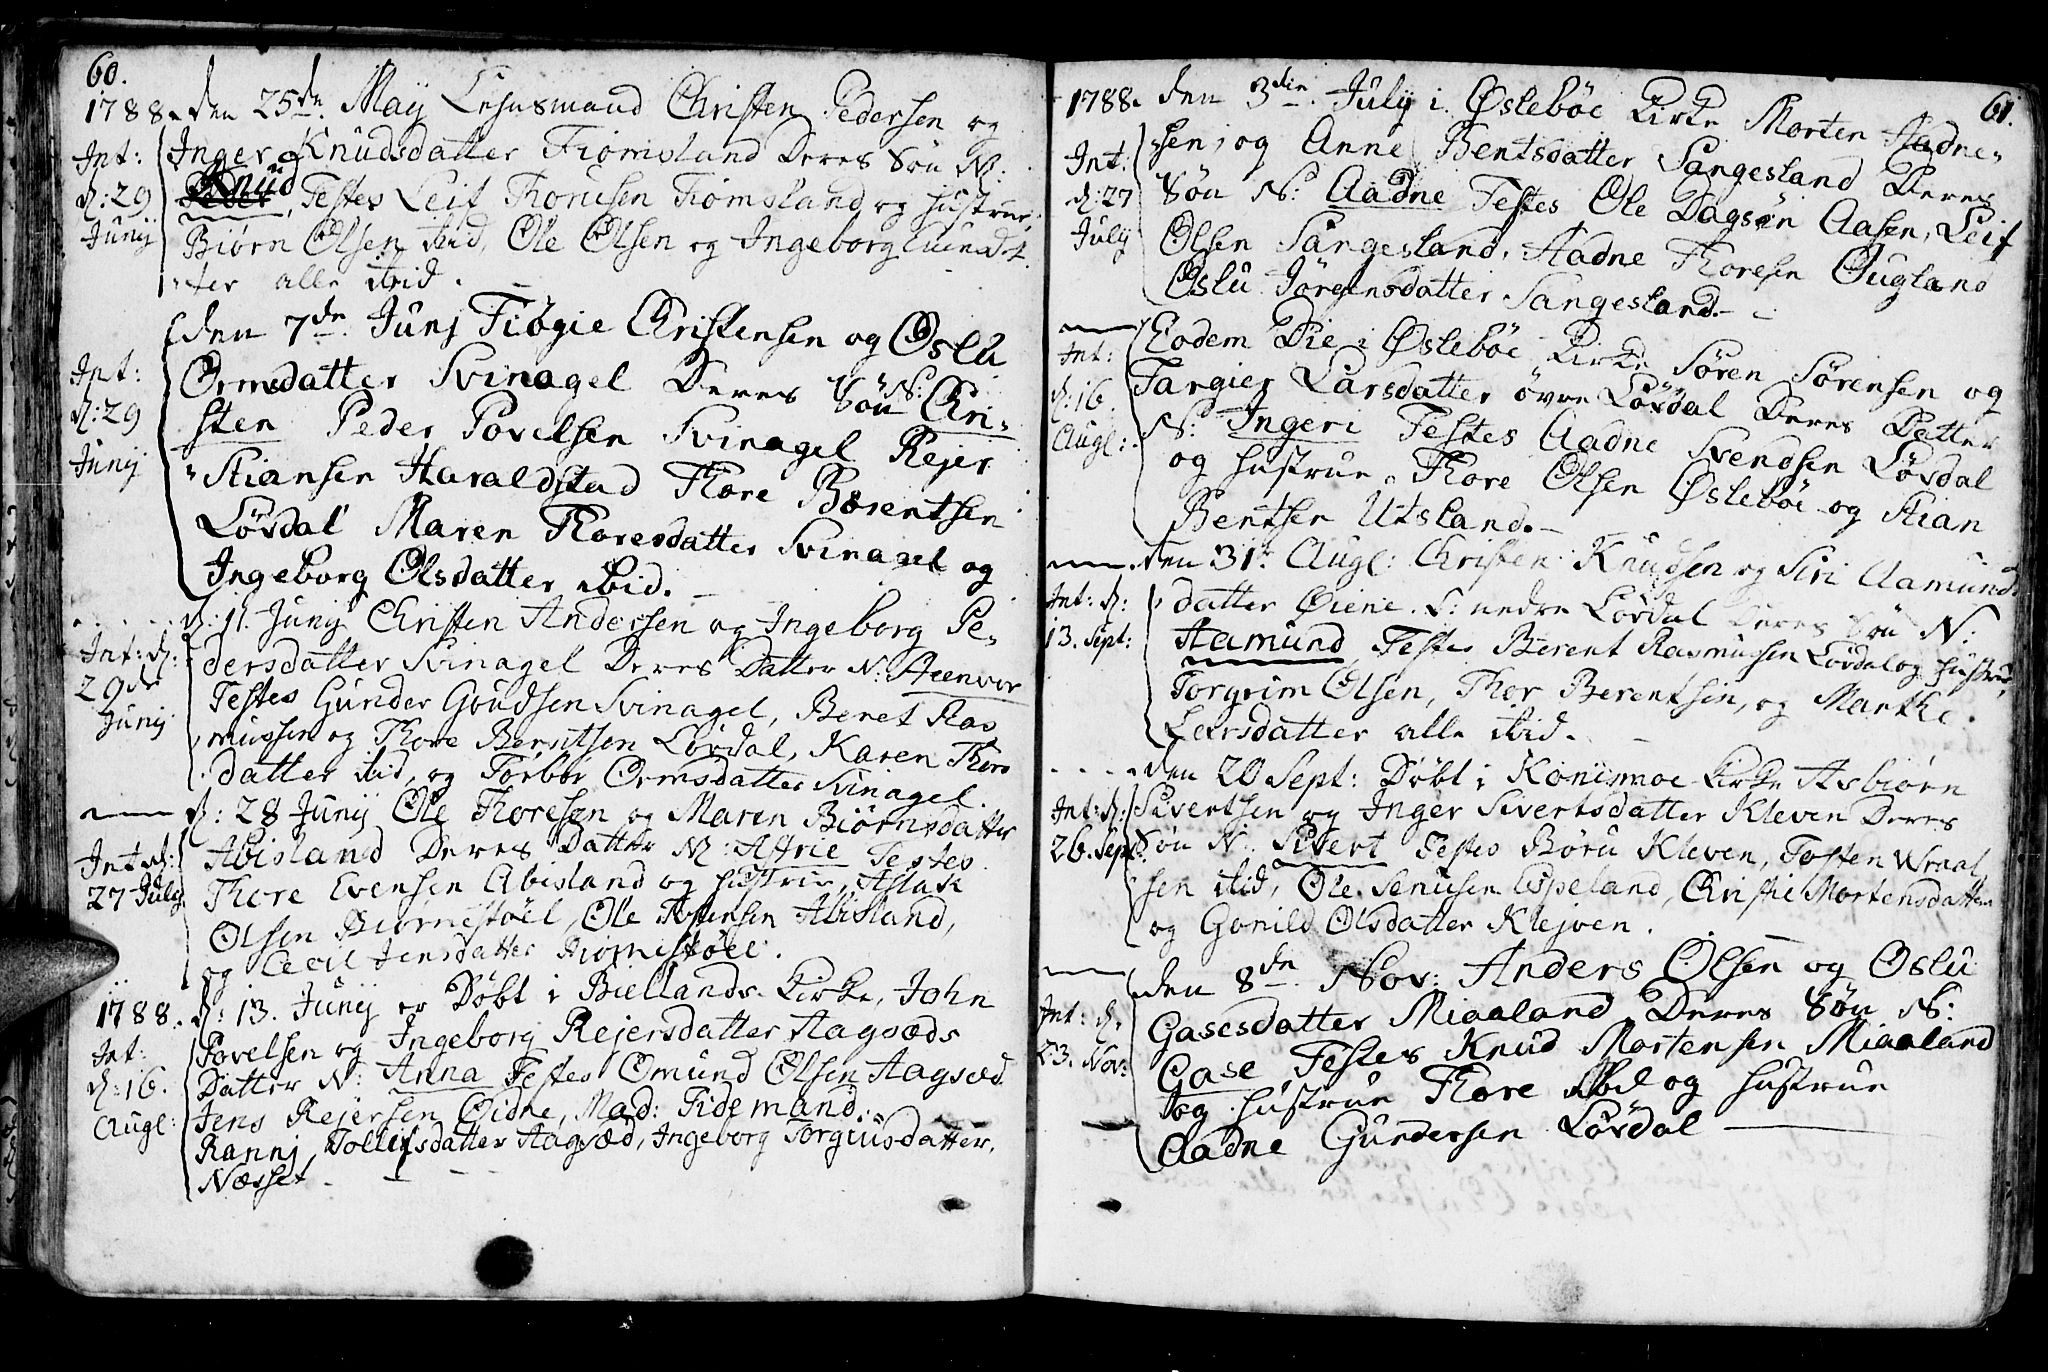 60.
1788. den 25de. Maÿ Lehnsmand Christen Pedersen og
Int: Inger Knudsdatter Tiomsland Deres Søn N:
d: 29 Knud, Testes Leif Thoresen Tiomsland og hustrue,
Junij Biørn Olsen ibid, Ole Olsen og Ingeborg
ter alle ibid.
den 7de. Junj Tiøgie Christensen og Oslu
Int: Ormsdatter Svinagel Deres Søn N: Chri-
d: 29 sten Peder Povelsen Svinagel Rejer
Junij Stiansen Haraldstad Thore Børentsen
Løvdal Maren Thoresdatter Svinagel og
Ingeborg Olsdatter ibid.
d: 11. Junij Christen Andersen og Ingeborg Pe-
Int: d: dersdatter Svinagel Deres Datter N: Steenvor
29de Testes Gunder Gundsen Svinagel, Beret Ras
Junij mussen og Thore Berntsen Løvdal, Karen Thors
datter ibid, og Torbor Ormsdatter Svinagel.
d: 28 Junij Ole Thoresen og Maren Biørnsdatter
Int: d: Abisland Deres Datter N: Astrie Testes
27 July Thore Evensen Abisland og hustrue, Aslak
Olsen Biørnestøel, Ole Abisland,
og Cecil Jensdatter
1788. d: 13. Junij er Døbt i Biellands Kirke, John
Int: Povelsen og Ingeborg Rejersdatter Aagsæds
d: 16. Datter N: Anna Testes Omund Olsen Aagsæd
Augl: Jens Rejersen Øidne, Mad: Tidemand
Rannj Tollifsdatter Aagsæd, Ingeborg Torgiusdatter
Næsset.
61.
1788. den 3die. July i Østebøe Kirke Morten Aadne-
Int: sen og Anne Bentsdatter Sangesland Deres
d: 27 Søn N: Aadne Testes Ole Dagsøn Aasen, Leif
July Olsen Sangesland, Aadne Thoresen Ougland
Oslu Jørgensdatter Sangesland.
Int: Eodem Die i Østebøe Kirke Søren Sørensen og
d: 16. Targier Larsdatter øvre Løvdal Deres Datter
Augl: N: Ingeri Testes Aadne Svendsen Løvdal
og hustrue, Thore Olsen Østebøe og Stian
Bentsen Utsland.
den 31te Augl: Christen Knudsen og Siri Aamunds
Int: d: datter Øiene. nedre Løvdal Deres Søn N:
13. Sept: Aamund Testes Berent Rasmusen Løvdal og hustrue,
Torgrim Olsen, Thor Berentsen, og Marthe
Larsdatter alle ibid.
den 20 Sept: Døbt i Konismoe Kirke Asbiørn
Int: d: Sivertsen og Inger Sivertsdatter Kleven Deres
26. Sept: Søn N: Sivert Testes Børu Kleven, Tosten Wraal
sen ibid, Ole Espeland, Christie Mortensdatter
og Gonild Olsdatter Klejven.
den 8de. Nov: Anders Olsen og Oslu
Int: d: Gasesdatter Miaaland Deres Søn N:
23. Nov: Gase Testes Knud Mortensen Miaaland
og hustrue Thore ibid og hustrue
Aadne Gundersen Løvdal